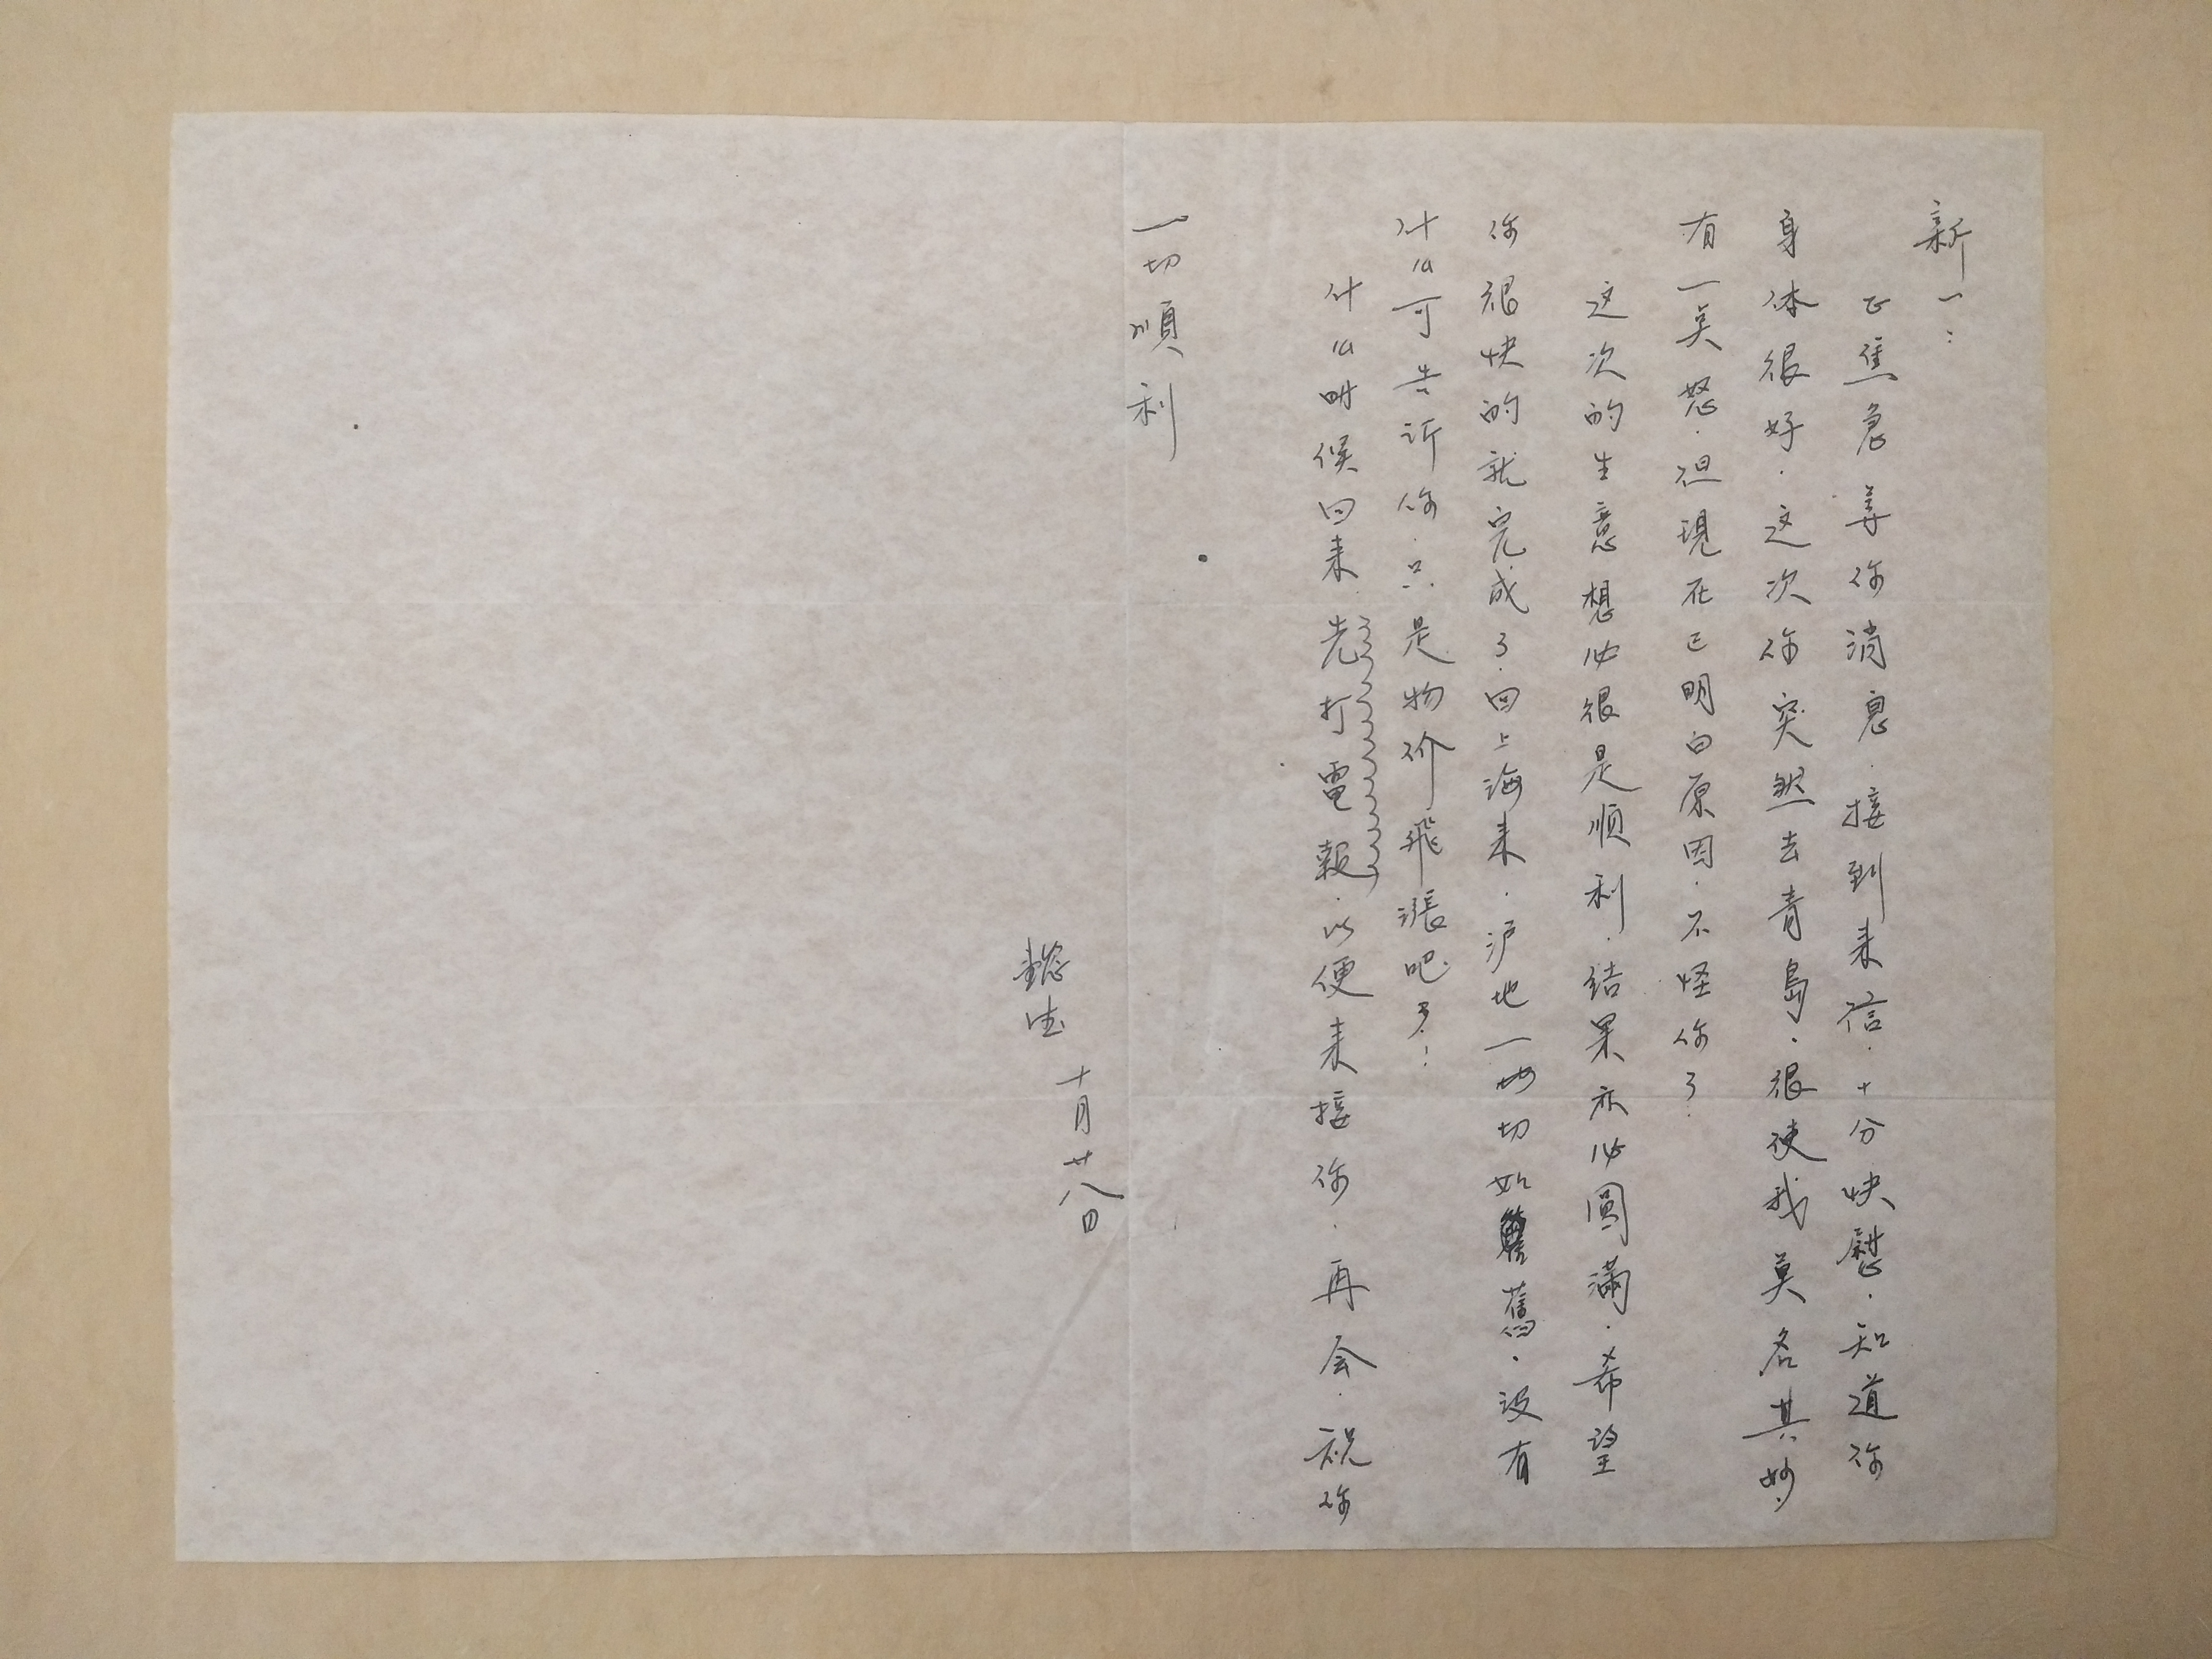 新一：
正焦急等你消息．接到来信．十分快慰．知道你
身体很好．这次你突然去青島．很使我莫名其妙．
有一点怒．但現在已明白原因．不怪你了．
这次的生意想必很是順利．结果亦必圓滿．希望
你很快的就完成了．回上海来．沪地一切如舊．没有
什么可告訴你．只是物价飛漲吧了！
什么时候回来先打電報．以便来接你．再会．祝你
一切順利
十月廿八日